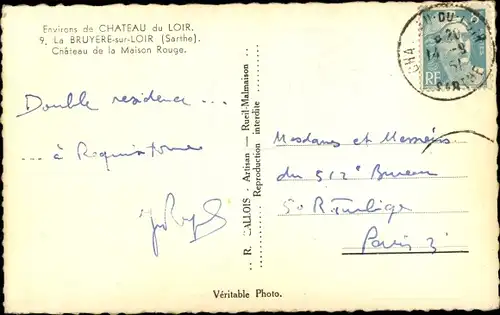 Environs de CHATEAU du LOIR.
9. La BRUYERE-sur-LOIR (Sarthe).
Château de la Maison Rouge.
Double residence ...
... à
R. LALLOIS - Artisan — Rueil-Malmaison
Reproduction interdite
RF
Mesdames et Messieurs
du 512e Bureau
50 R. Turbigo
Paris 3
Véritable Photo.